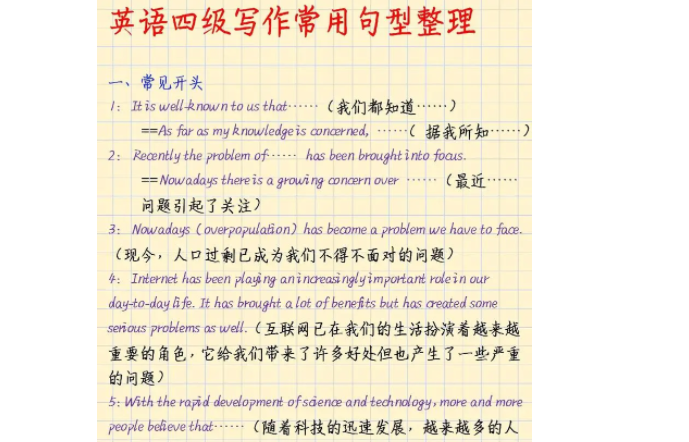 英语四级写作常用句型整理
一、常见开头
1: It is well-known to us that……（我们都知道……）
==As far as my knowledge is concerned, ……( 据我所知……)
2: Recently the problem of…… has been brought into focus.
==Nowadays there is a growing concern over ……（最近……
问题引起了关注）
3: Nowadays (overpopulation) has become a problem we have to face.
（现今，人口过剩已成为我们不得不面对的问题）
4: Internet has been playing an increasingly important role in our
day-to-day life. It has brought a lot of benefits but has created some
serious problems as well.（互联网已在我们的生活扮演着越来越
重要的角色，它给我们带来了许多好处但也产生了一些严重
的问题）
5: With the rapid development of science and technology, more and more
people believe that……（随着科技的迅速发展，越来越多的人